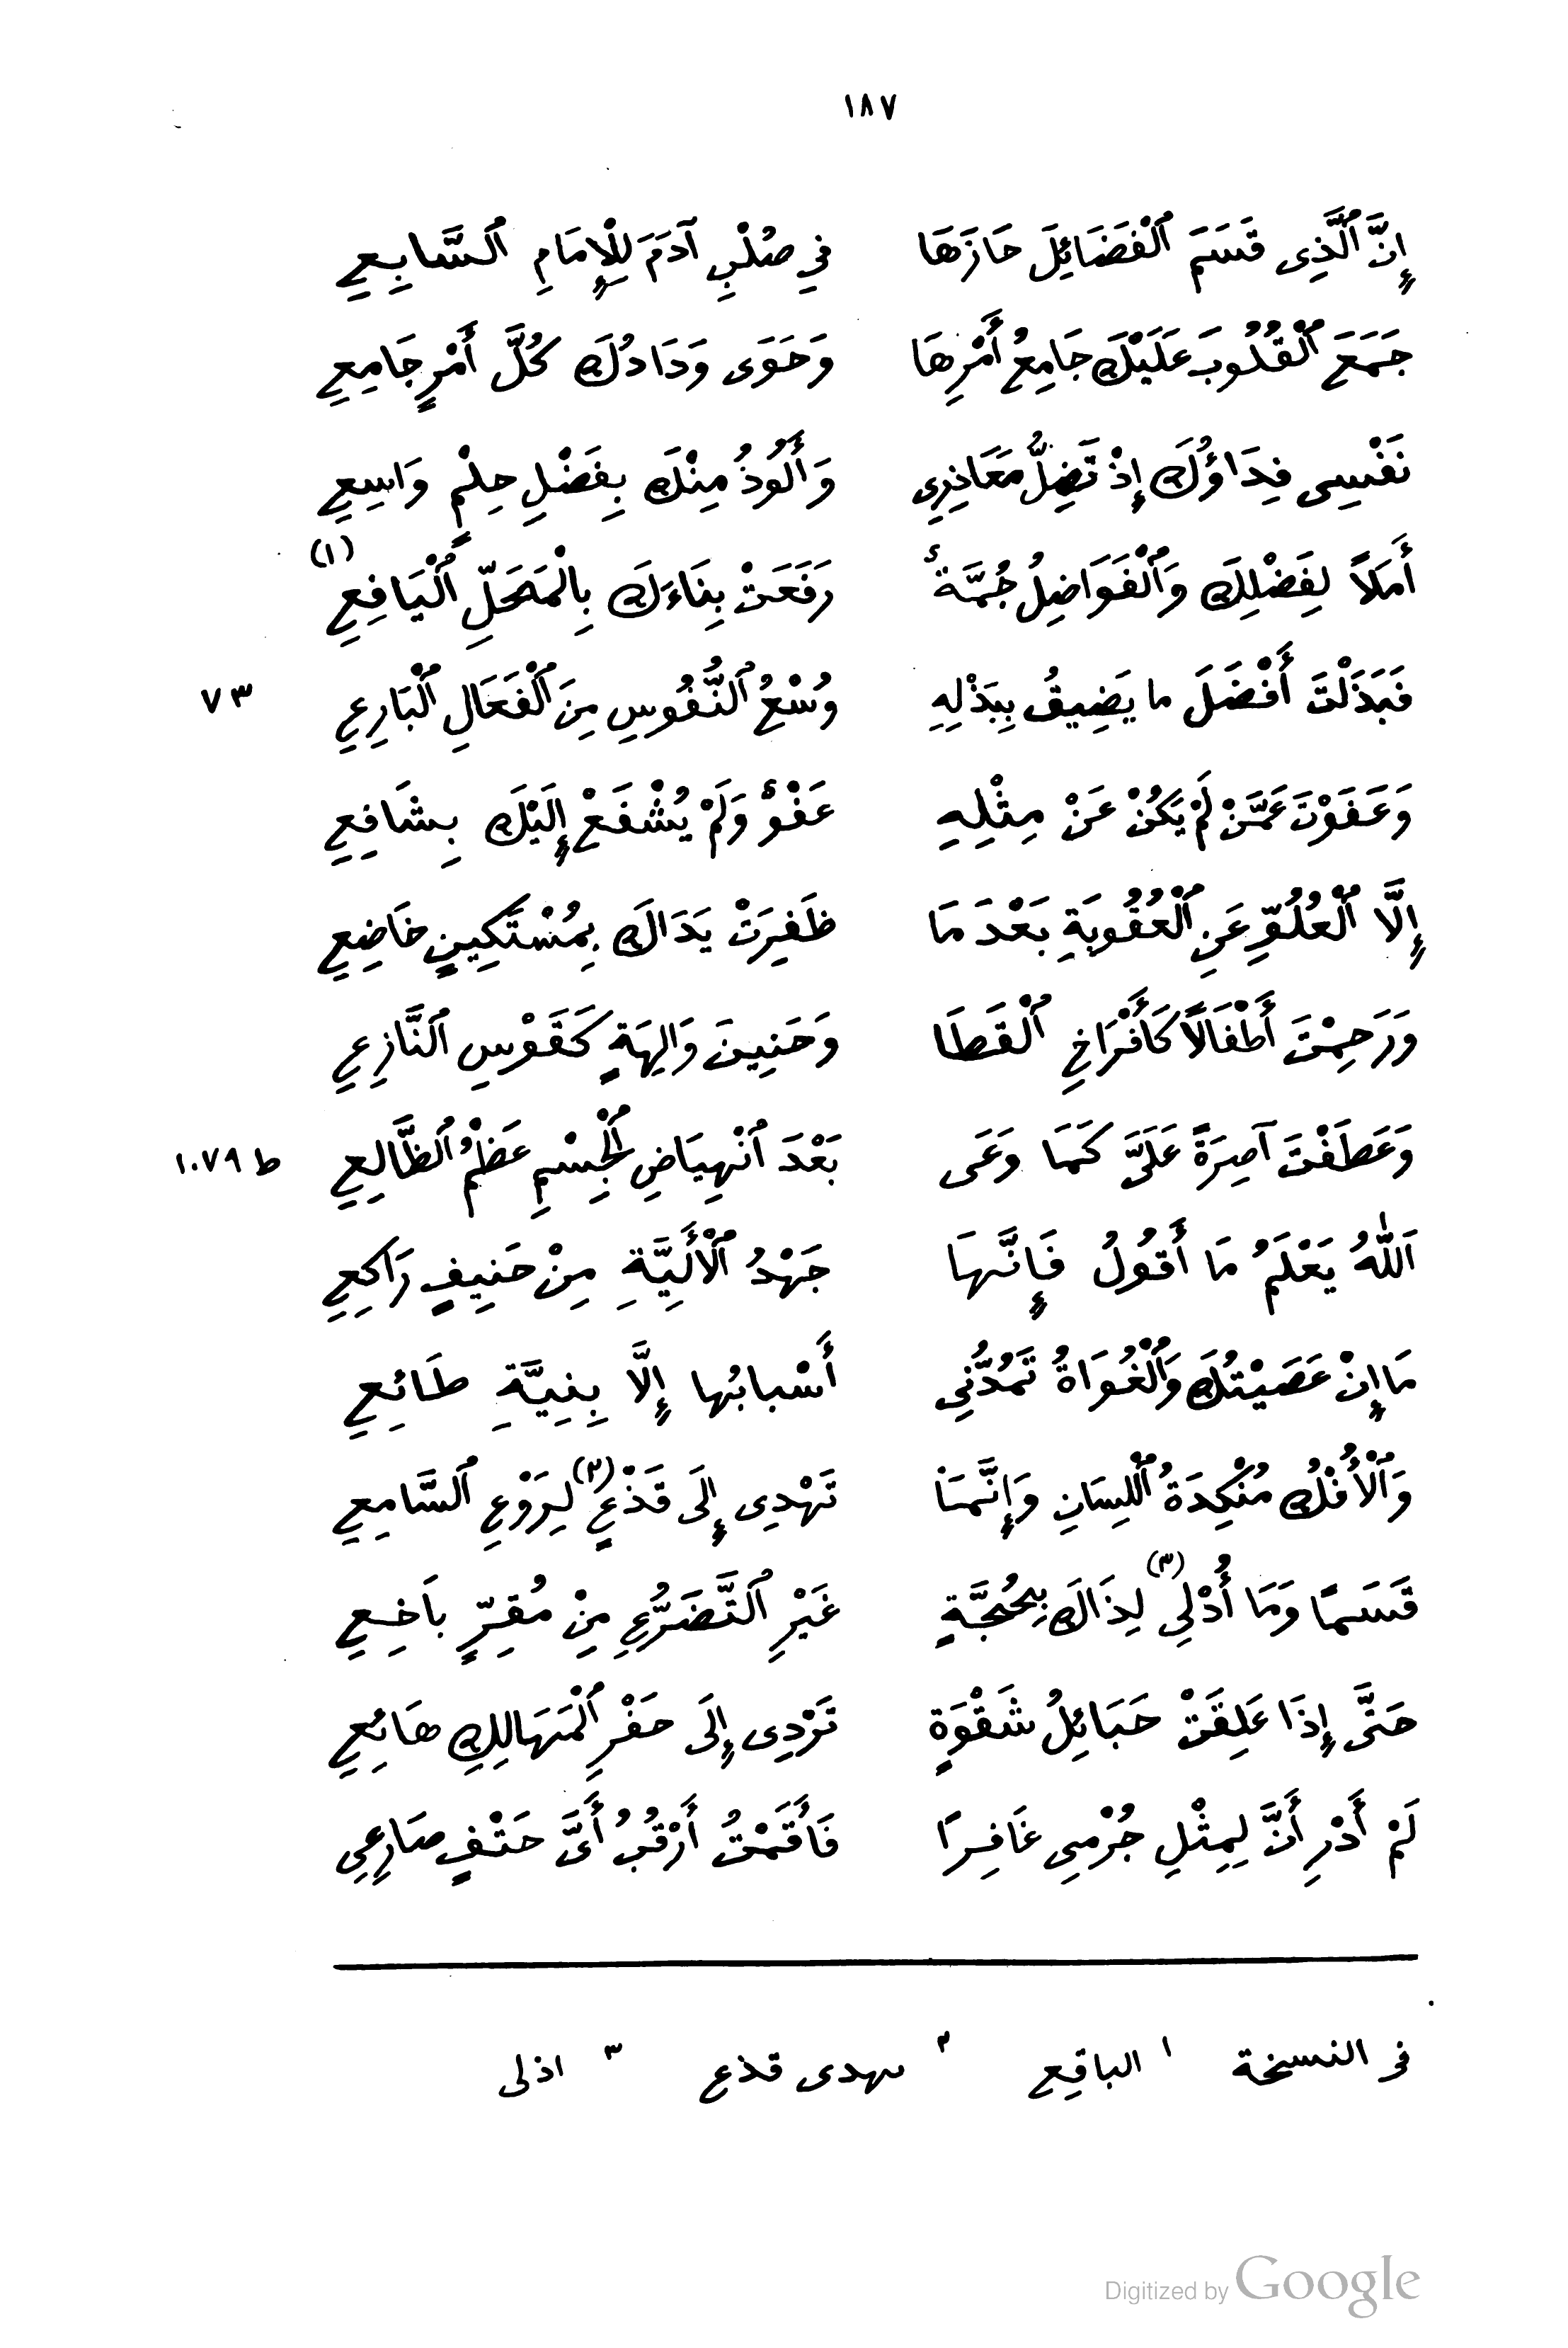 ١٨٧
إِنَّ ٱلَّذِى قَسَمَ ٱلْفَضَائِلَ حَازَهَا فِي صُلْبِ آدَمَ لِلْإِمَامِ ٱلسَّابِعِ
جَمَعَ ٱلْقُلُوبَ عَلَيْكَ جَامِعُ أَمْرِهَا وَحَوَى وَدَادُكَ كُلَّ أَمْرٍ جَامِعِ
نَفْسِى فِدَاؤُكَ إِذْ تَضِلُّ مَعَاذِرِي وَأَلُوذُ مِنْكَ بِفَضْلِ حِلْمٍ وَاسِعِ
أَمَلاً لِفَضْلِكَ وَٱلْفَوَاضِلُ جُمَّةٌ رَفَعَتْ بِنَاءَكَ بِالْمَحَلِّ ٱلْيَافِعِ (١)
فَبَذَلْتَ أَفْضَلَ ما يَضِيقُ بِبَذْلِهِ وُسْعُ ٱلنُّفُوسِ مِنَ ٱلْفَعَالِ ٱلْبَارِعِ ٧٣
وَعَفَوْتَ عَمَّنْ لَمْ يَكُنْ عَنْ مِثْلِهِ عَفْوٌ وَلَمْ يُشْفَعْ إِلَيْكَ بِشَافِعِ
إِلَّا ٱلْعُلُوِّ عَنِ ٱلْعُقُوبَةِ بَعْدَ مَا ظَفِرَتْ يَدَاكَ بِمُسْتَكِينٍ خَاضِعِ
وَرَحِمْتَ أَطْفَالًا كَأَفْرَاخِ ٱلْقَطَا وَحَنِينَ وَالِهَةٍ كَقَوْسِ ٱلنَّازِعِ
وَعَطَفْتَ آصِرَةً عَلَىَّ كَمَا وَعَى بَعْدَ ٱنْهِيَاضِ ٱلْجِسْمِ عَظْمُ ٱلظَّالِعِ ط ١٠٧٩
ٱللّٰهُ يَعْلَمُ مَا أَقُولُ فَإِنَّهَا جَهْدُ ٱلْأَلِيَّةِ مِنْ حَنِيفٍ رَاكِعِ
مَا إِنْ عَصَيْتُكَ وَٱلْغُوَاةُ تَمُدُّنِى أَسْبابُها إِلَّا بِنِيَّةِ طَائِعِ
وَٱلْأُفْكُ مُنْكِدَةُ ٱللِسَانِ وَإِنَّمَا تَهْدِى إِلَى قَذْعٍ (٢) لِرَوْعِ ٱلسَّامِعِ
قَسَمًا وَمَا أُدْلِي (٣) لِذَاكَ بِحُجَّةٍ غَيْرِ ٱلتَّضَرُّعِ مِنْ مُقِرٍّ بَاخِعِ
حَتَّى إِذَا عَلِقَتْ حَبَائِلُ شَقْوَةٍ تَرْدِى إِلَى حَفْرِ ٱلْمَهَالِكِ هَائِعِ
لَمْ أَدْرِ أَنَّ لِمِثْلِ جُرْمِى غَافِرًا فَأَقَمْتُ أَرْقُبُ أَىَّ حَتْفٍ صَارِعِي
فى النسخة ١ الباقع ٢ ىهدى قذع ٣ اذلى
Digitized by Google